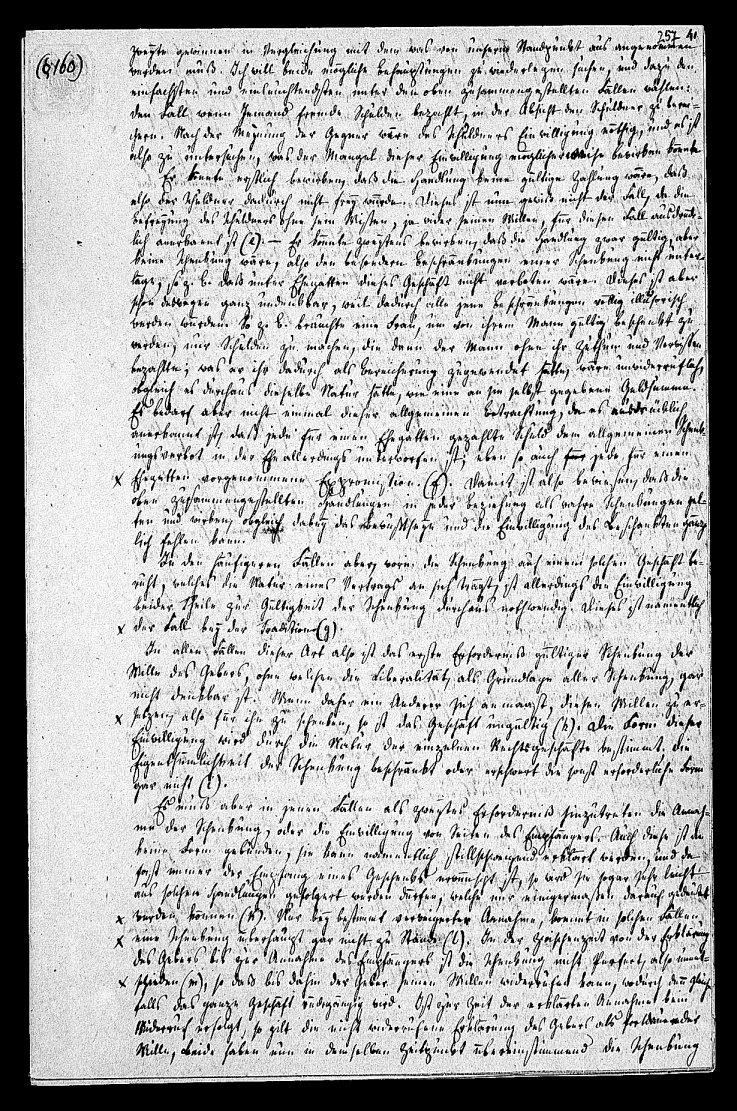 257 41
(§160)
zweyte gewinnen in Vergleichung mit dem was von unserm Standpunkt aus angenommen
werden muß. Ich will beide mögliche Behauptungen zu widerlegen suchen, und dazu den
einfachsten und einleuchtendsten unter den oben zusammengestellten Fällen wählen:
den Fall, wenn Jemand fremde Schulden bezahlt, in der Absicht den Schuldner zu berei-
chern. Nach der Meynung der Gegner wäre des Schuldners Einwilligung nöthig, und es ist
also zu untersuchen, was der Mangel dieser Einwilligung möglicherweise bewirken könnte
Er könnte erstlich bewirken, daß die Handlung keine gültige Zahlung wäre, daß
also der Schuldner dadurch nicht frey würde. Dieses ist nun gewiß nicht der Fall, da die
Befreyung des Schuldners ohne sein Wissen, ja wider seinen Willen, für diesen Fall ausdrück-
lich anerkannt ist (e). — Er könnte zweytens bewirken, daß die Handlung zwar gültig, aber
keine Schenkung wäre, also den besondern Beschränkungen einer Schenkung nicht unter-
läge, so z. B. daß unter Ehegatten dieses Geschäft nicht verboten wäre. Dieses ist aber
schon deswegen ganz undenkbar, weil dadurch alle jene Beschränkungen völlig illusorisch
werden würden. So z. B. brauchte eine Frau, um von ihrem Mann gültig beschenkt zu
werden, nur Schulden zu machen, die dann der Mann ohne ihr Zuthun und Vorwissen
bezahlte; was er ihr dadurch als Bereicherung zugewendet hätte, wäre unwiderruflich,
obgleich es durchaus dieselbe Natur hätte, wie eine an sie selbst gegebene Geldsumme.
Es bedarf aber nicht einmal dieser allgemeinen Betrachtung, da es ausdrücklich
anerkannt ist, daß jede für einen Ehegatten gezahlte Schuld dem allgemeinen Schenk-
ungsverbot in der Ehe allerdings unterworfen ist, eben so auch jede für einen
x Ehegatten vorgenommene Expromission (f). Damit ist also bewiesen, daß die
oben zusammengestellten Handlungen in jeder Beziehung als wahre Schenkungen gel-
ten und wirken, obgleich dabey das Bewußtseyn und die Einwilligung des Beschenkten gänz-
lich fehlen kann.
In den häufigeren Fällen aber, worin die Schenkung auf einem solchen Geschäft be-
ruht, welches die Natur eines Vertrags an sich trägt, ist allerdings die Einwilligung
beider Theile zur Gültigkeit der Schenkung durchaus nothwendig. Dieses ist namentlich
x der Fall bey der Tradition (g).
In allen Fällen dieser Art also ist das erste Erforderniß gültiger Schenkung der
Wille des Gebers, ohne welchen die Liberalität, als Grundlage aller Schenkung, gar
nicht denkbar ist. Wenn daher ein Anderer sich anmaaßt, diesen Willen zu er-
x setzen, also für ihn zu schenken, so ist das Geschäft ungültig (h). Die Form dieser
Einwilligung wird durch die Natur der einzelnen Rechtsgeschäfte bestimmt. Die
Eigenthümlichkeit der Schenkung beschränkt oder erschwert die sonst erforderliche Form
gar nicht (i).
Es muß aber in jenen Fällen als zweytes Erforderniß hinzutreten die Annah-
me der Schenkung, oder die Einwilligung von Seiten des Empfängers. Auch diese ist an
keine Form gebunden, sie kann namentlich stillschweigend erklärt werden, und da
fast immer der Empfang eines Geschenks erwünscht ist, so wird sie sogar sehr leicht
aus solchen Handlungen gefolgert werden dürfen, welche nur einigermaßen darauf gedeutet
x werden können (k). Nur bey bestimmt verweigerter Annahme, kommt in solchen Fällen
x eine Schenkung überhaupt gar nicht zu Stande (l). In der Zwischenzeit von der Erklärung
des Gebers bis zur Annahme des Empfängers ist die Schenkung nicht perfect, also unent-
x schieden (m), so daß bis dahin der Geber seinen Willen widerrufen kann, wodurch denn gleich-
falls das ganze Geschäft rückgängig wird. Ist zur Zeit der erklärten Annahme kein
Widerruf erfolgt, so gilt die nicht widerrufene Erklärung des Gebers als fortdauernder
Wille, beide haben nun in demselben Zeitpunkt übereinstimmend die Schenkung